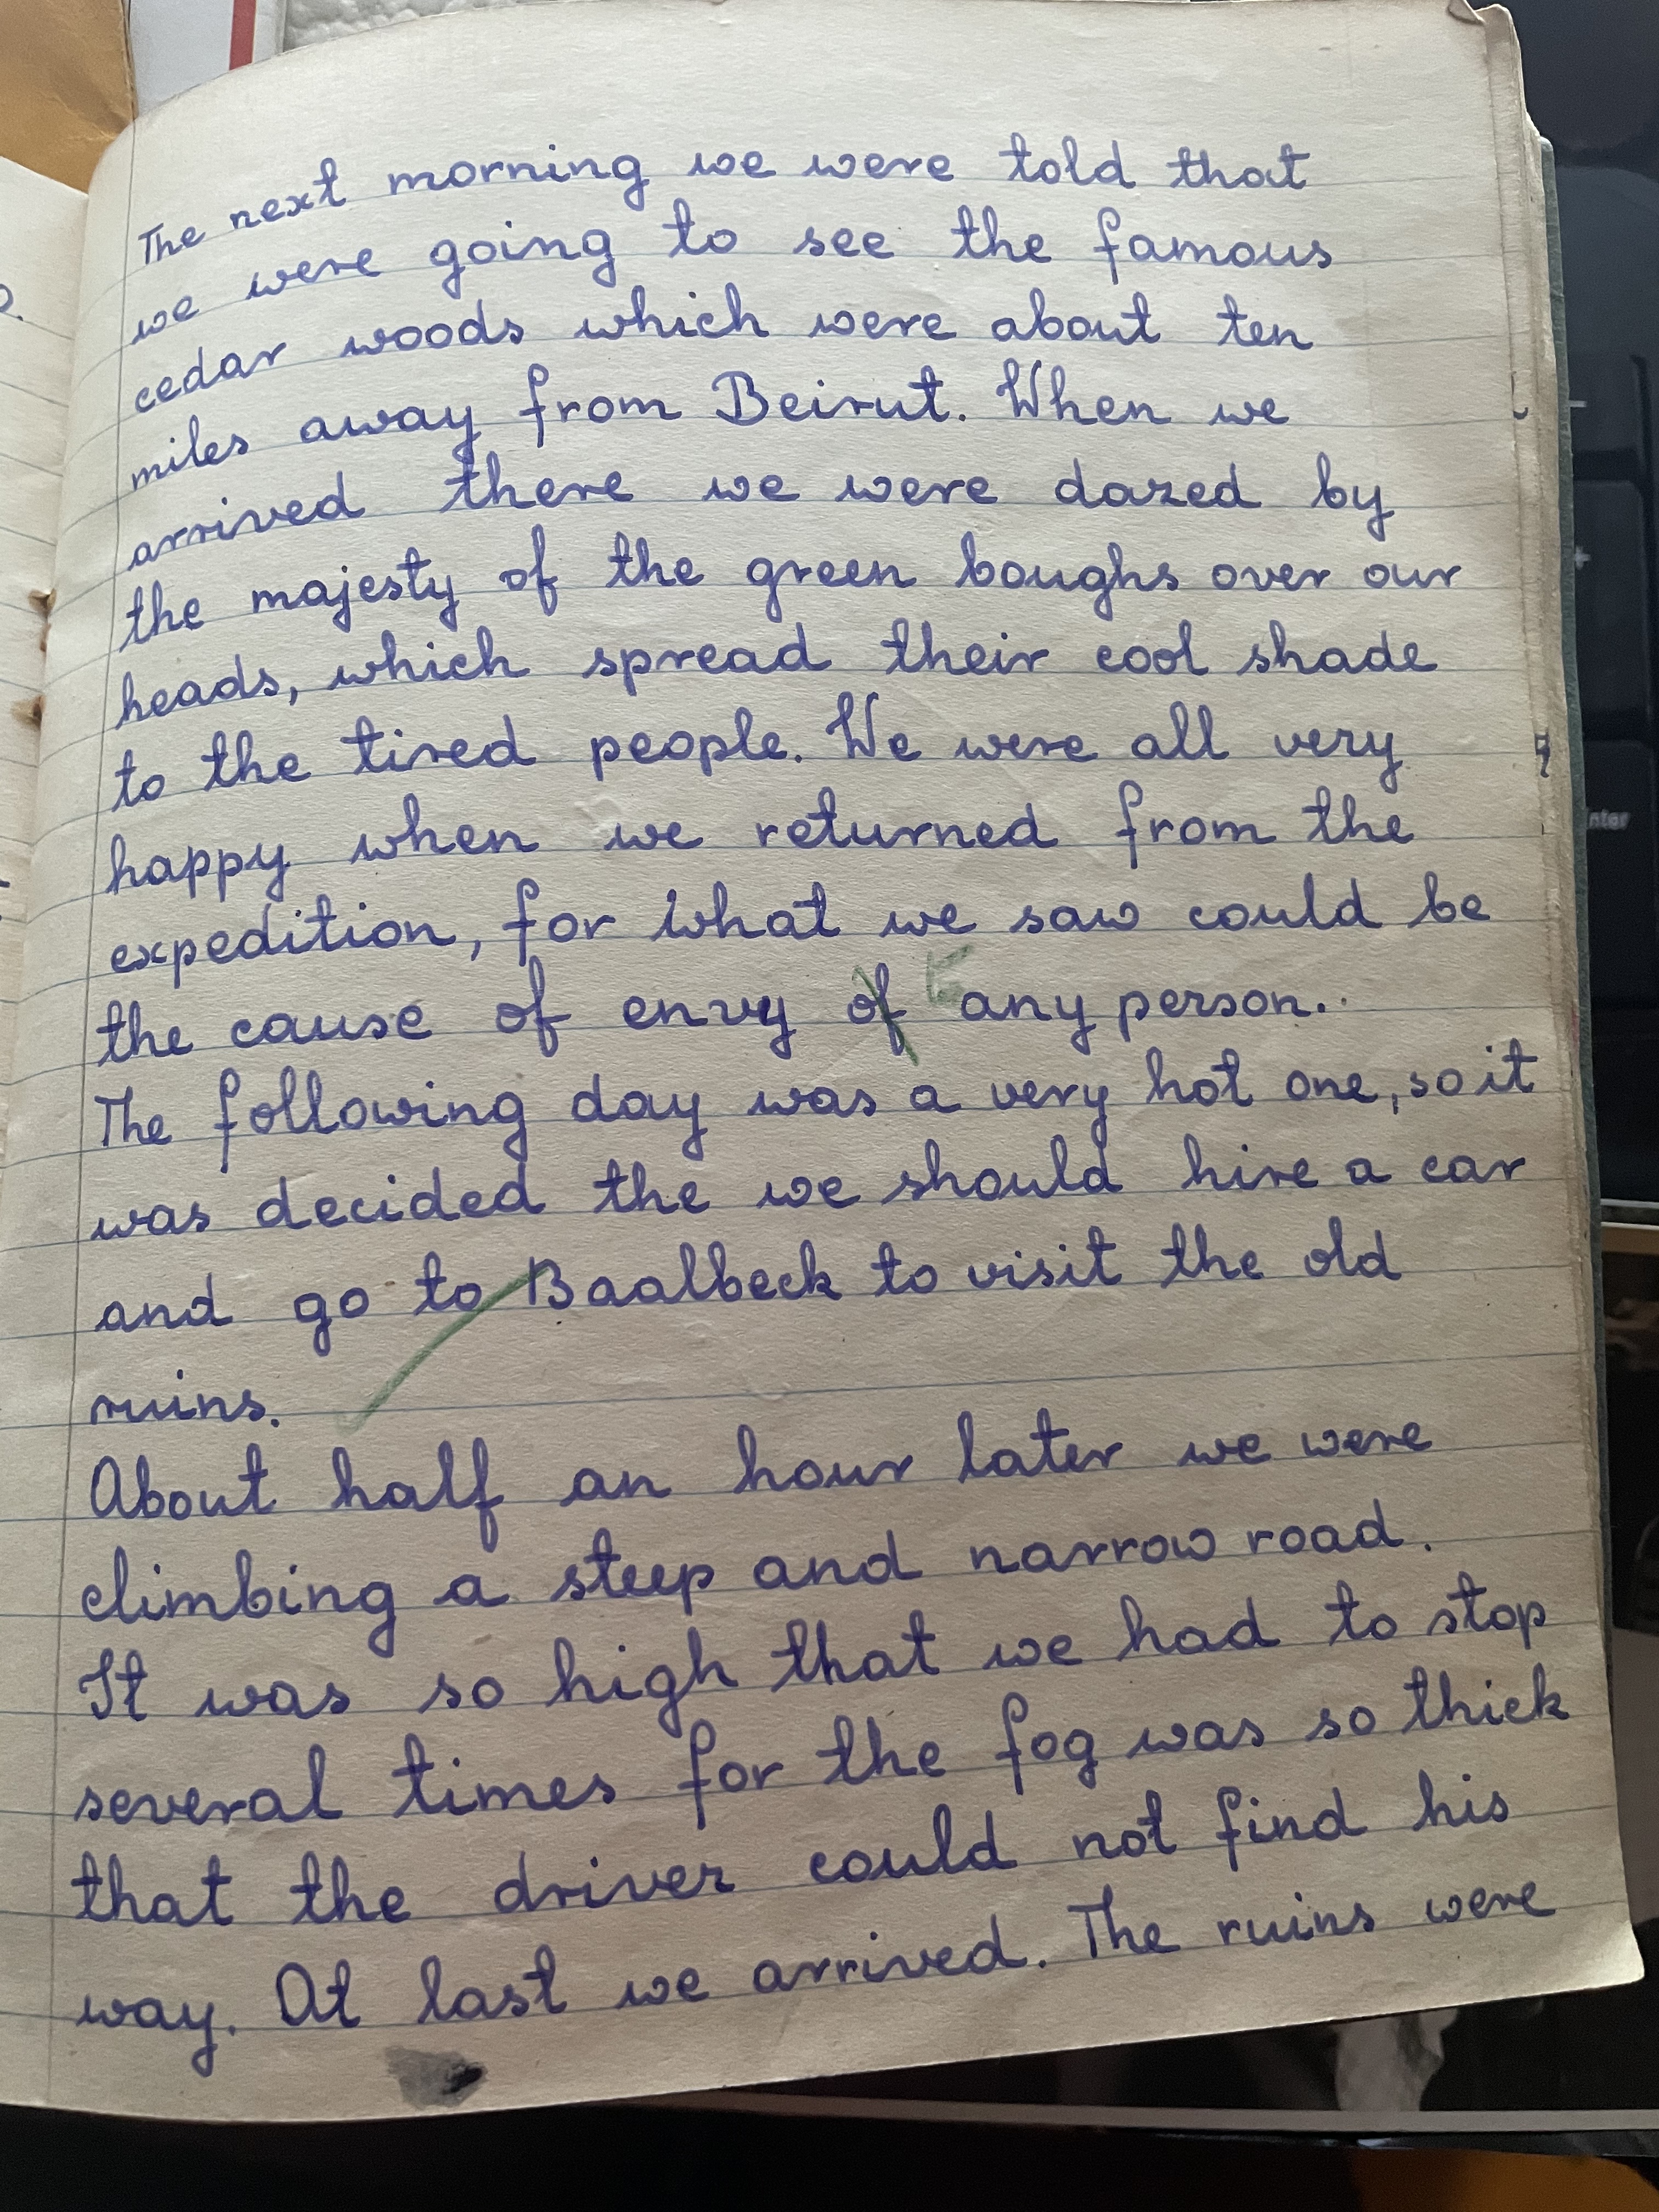 The next morning we were told that
we were going to see the famous
cedar woods which were about ten
miles away from Beirut. When we
arrived there we were dazed by
the majesty of the green boughs over our
heads, which spread their cool shade
to the tired people. We were all very
happy when we returned from the
expedition, for what we saw could be
the cause of envy of any person.
The following day was a very hot one, so it
was decided the we should hire a car
and go to Baalbeck to visit the old
ruins.
About half an hour later we were
climbing a steep and narrow road.
It was so high that we had to stop
several times for the fog was so thick
that the driver could not find his
way. At last we arrived. The ruins were